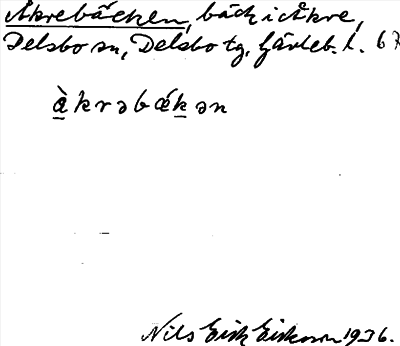 Åkrebäcken, bäck i Åkre,
Delsbo sn, Delsbo tg, Gävleb. l. 67
àkrəbækən
Nils Erik Eriksson 1936.